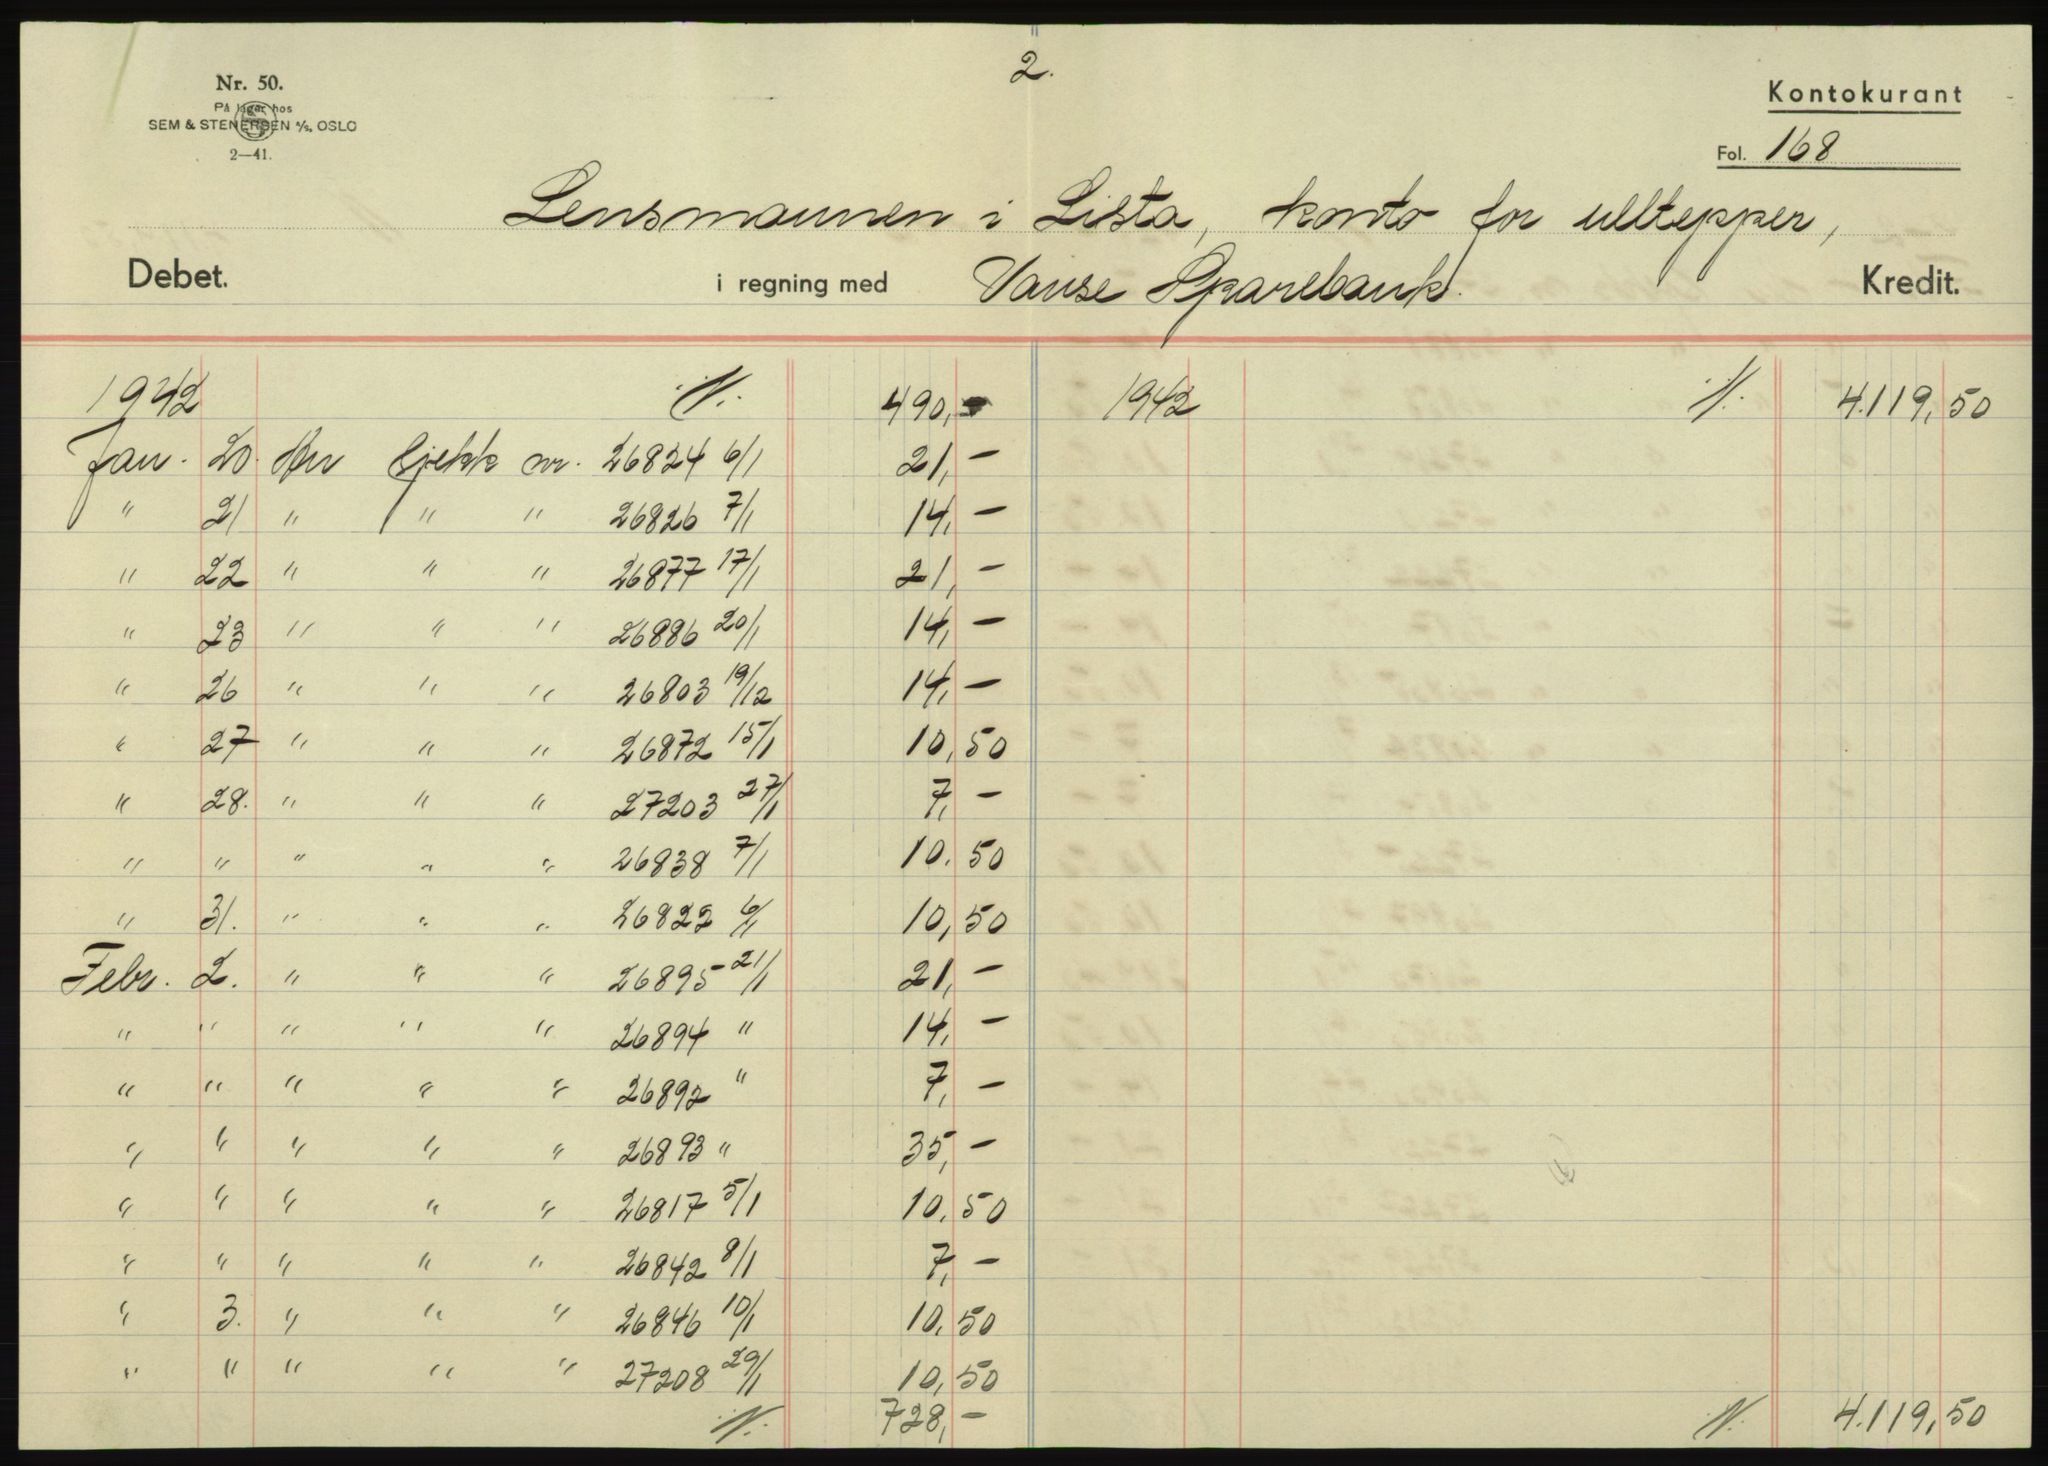 2.
Nr. 50.
På lager hos
SEM & STENERSEN A/S, OSLO
2—41.
Kontokurant
Fol. 168
Lensmannen i Lista, konto for ulltepper,
Debet. i regning med Vanse Sparebank. Kredit.
1942 490,- 1942 4.119,50
Jan. 20. Her Cjekk nr. 26824 6/1 21,-
" 21 " " " 26826 7/1 14,-
" 22 " " " 26877 17/1 21,-
" 23 " " " 26886 20/1 14,-
" 26 " " " 26803 19/12 14,-
" 27 " " " 26872 15/1 10,50
" 28. " " " 27203 27/1 7,-
" " " " " 26838 7/1 10.50
" 31. " " " 26822 6/1 10,50
Febr. 2. " " " 26895 21/1 21,-
" " " " " 26894 " 14,-
" " " " " 26892 " 7,-
" " " " " 26893 " 35,-
" " " " " 26817 5/1 10.50
" " " " " 26842 8/1 7,-
" 3. " " " 26846 10/1 10.50
" " " " " 27208 29/1 10,50
728,- 4.119,50